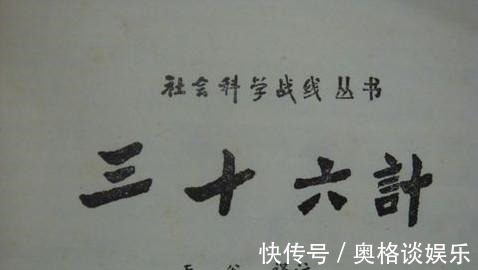 社会科学战线丛书
三十六計
快传号／奥格谈娱乐